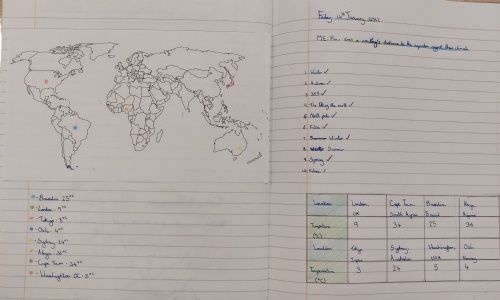 Friday 14th January 2022
ME: How does a country's distance to the equator affect their climate
1. Winter ✓
2. Autumn ✓
3. 365 ✓
4. The tilting the earth ✓
5. North pole ✓
6. False ✓
7. Summer Winter ✓
8. Winter Summer
9. Spring ✓
10. False ✓
Brasilia 25°C
London 9°C
Tokyo 3°C
Oslo 4°C
Sydney 24°C
Abuja 36°C
Cape Town 34°C
Washington DC 5°C
Location London UK Cape Town South Africa Brasilia Brazil Abuja Nigeria
Temperature (°C) 9 34 25 36
Location Tokyo Japan Sydney Australia Washington USA Oslo Norway
Temperature (°C) 3 24 5 4